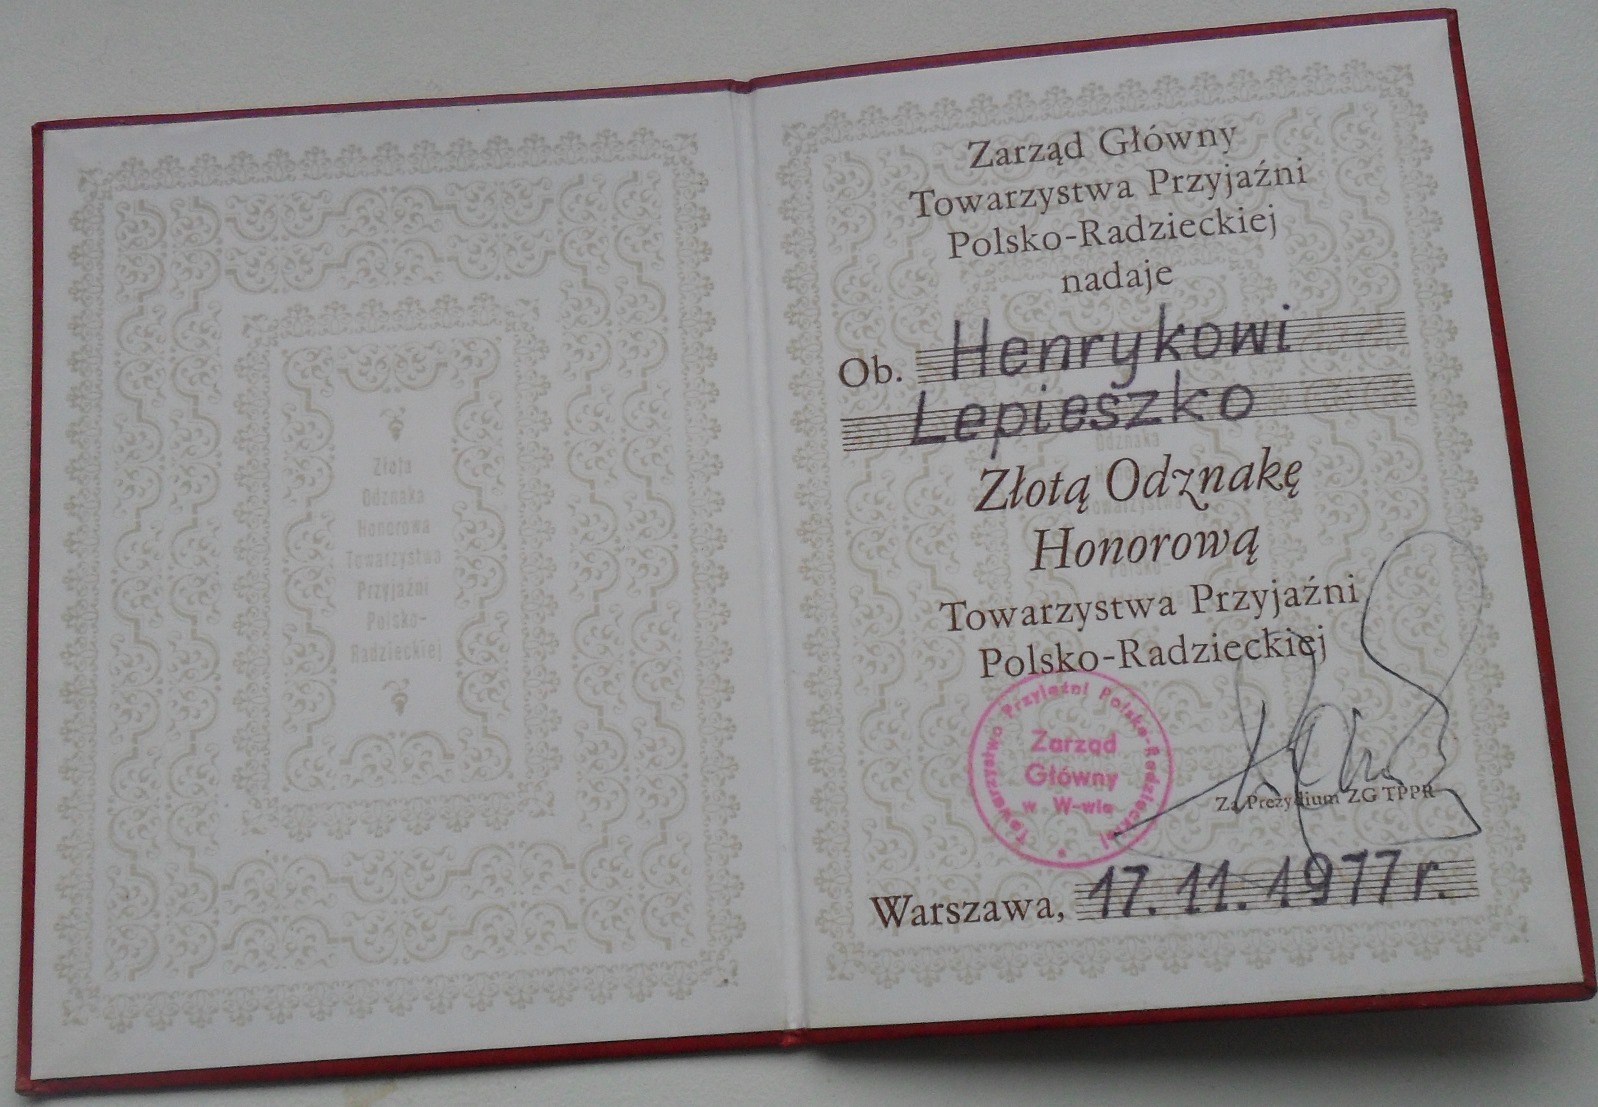 Złota
Odznaka
Honorowa
Towarzystwa
Przyjaźni
Polsko-
Radzieckiej
Zarząd Główny
Towarzystwa Przyjaźni
Polsko-Radzieckiej
nadaje
Ob. Henrykowi
Lepieszko
Złotą Odznakę
Honorową
Towarzystwa Przyjaźni
Polsko-Radzieckiej
Towarzystwo Przyjaźni Polsko-Radzieckiej
Zarząd
Główny
w W-wie
Za Prezydium ZG TPPR
Warszawa, 17.11.1977 r.